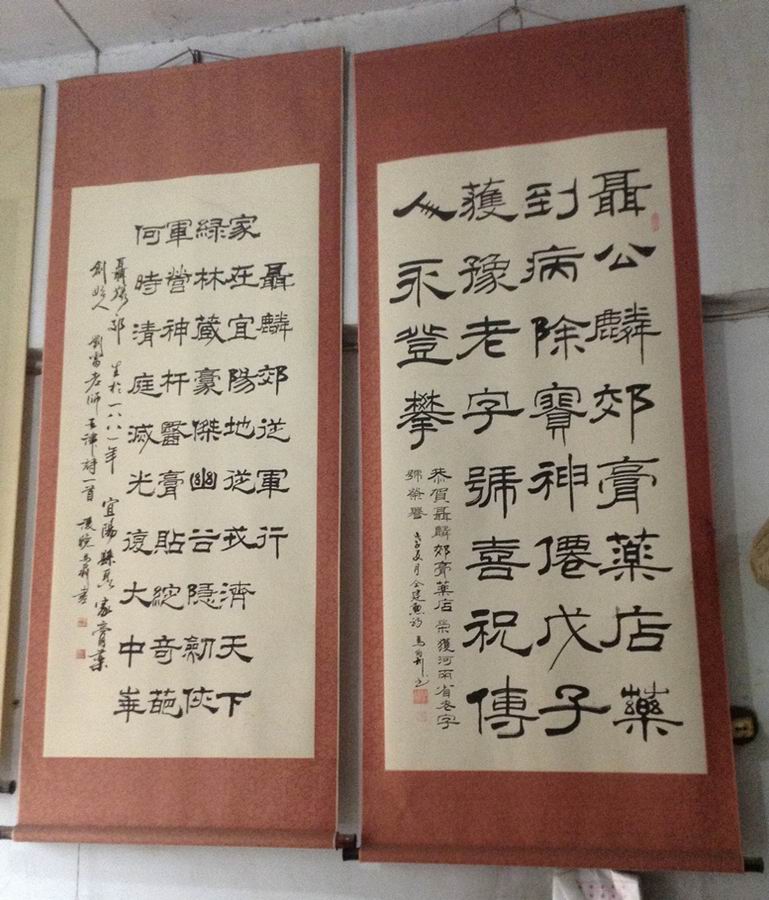 聶公麟郊膏藥店藥
到病除賽神僊戊子
獲豫老字號喜祝傳
人永登攀
恭賀聶麟郊膏藥店榮獲河南省老字
號榮譽 戊子夏月
聶麟郊從軍行
家在宜陽地從戎濟天下
綠林藏豪傑幽谷隱劍俠
軍營神杆醫膏貼綻奇葩
何時清庭滅光復大中華
聶麟郊 生於一八八一年 宜陽縣聶家膏藥
創始人 劉富老師五律詩一首